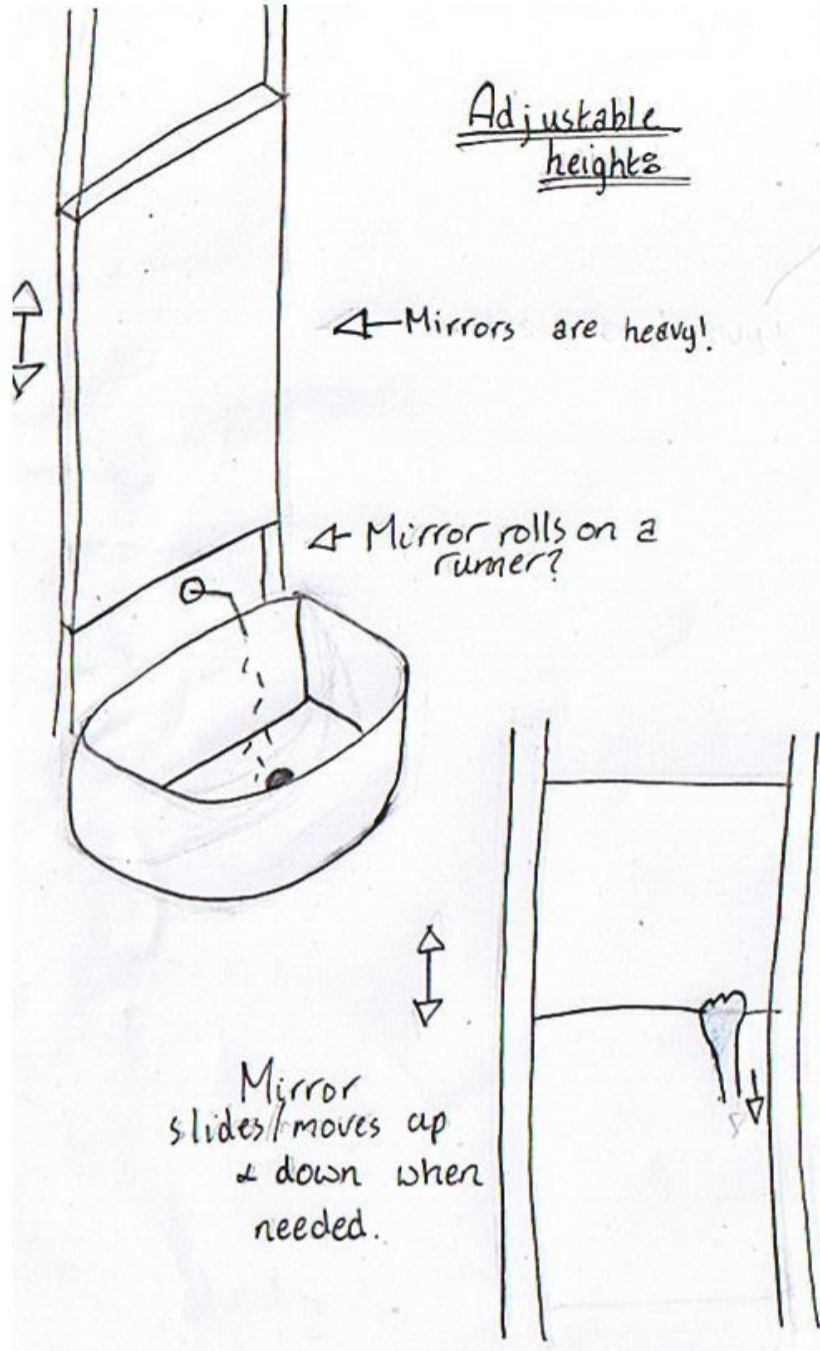 Adjustable
heights
Mirrors are heavy!
Mirror rolls on a
runner?
Mirror
slides/moves up
& down when
needed.